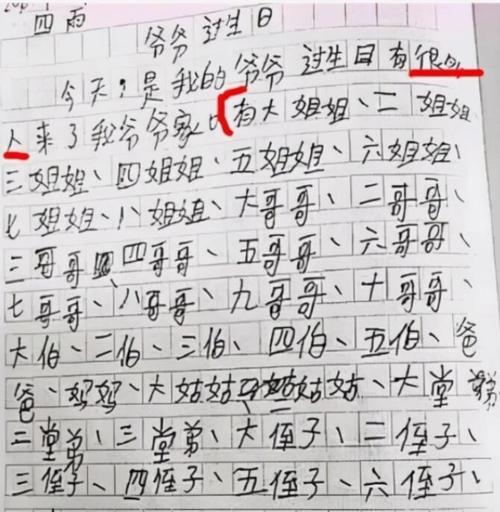 四雨
爷爷过生日
今天,是我的爷爷过生日有很多
人来了我爷爷家。有大姐姐、二姐姐
三姐姐、四姐姐、五姐姐、六姐姐、
七姐姐、八姐姐、大哥哥、二哥哥、
三哥哥、四哥哥、五哥哥、六哥哥、
七哥哥、八哥哥、九哥哥、十哥哥、
大伯、二伯、三伯、四伯、五伯、爸
爸、妈妈、大姑姑、二姑姑、大堂弟
二堂弟、三堂弟、大侄子、二侄子、
三侄子、四侄子、五侄子、六侄子、